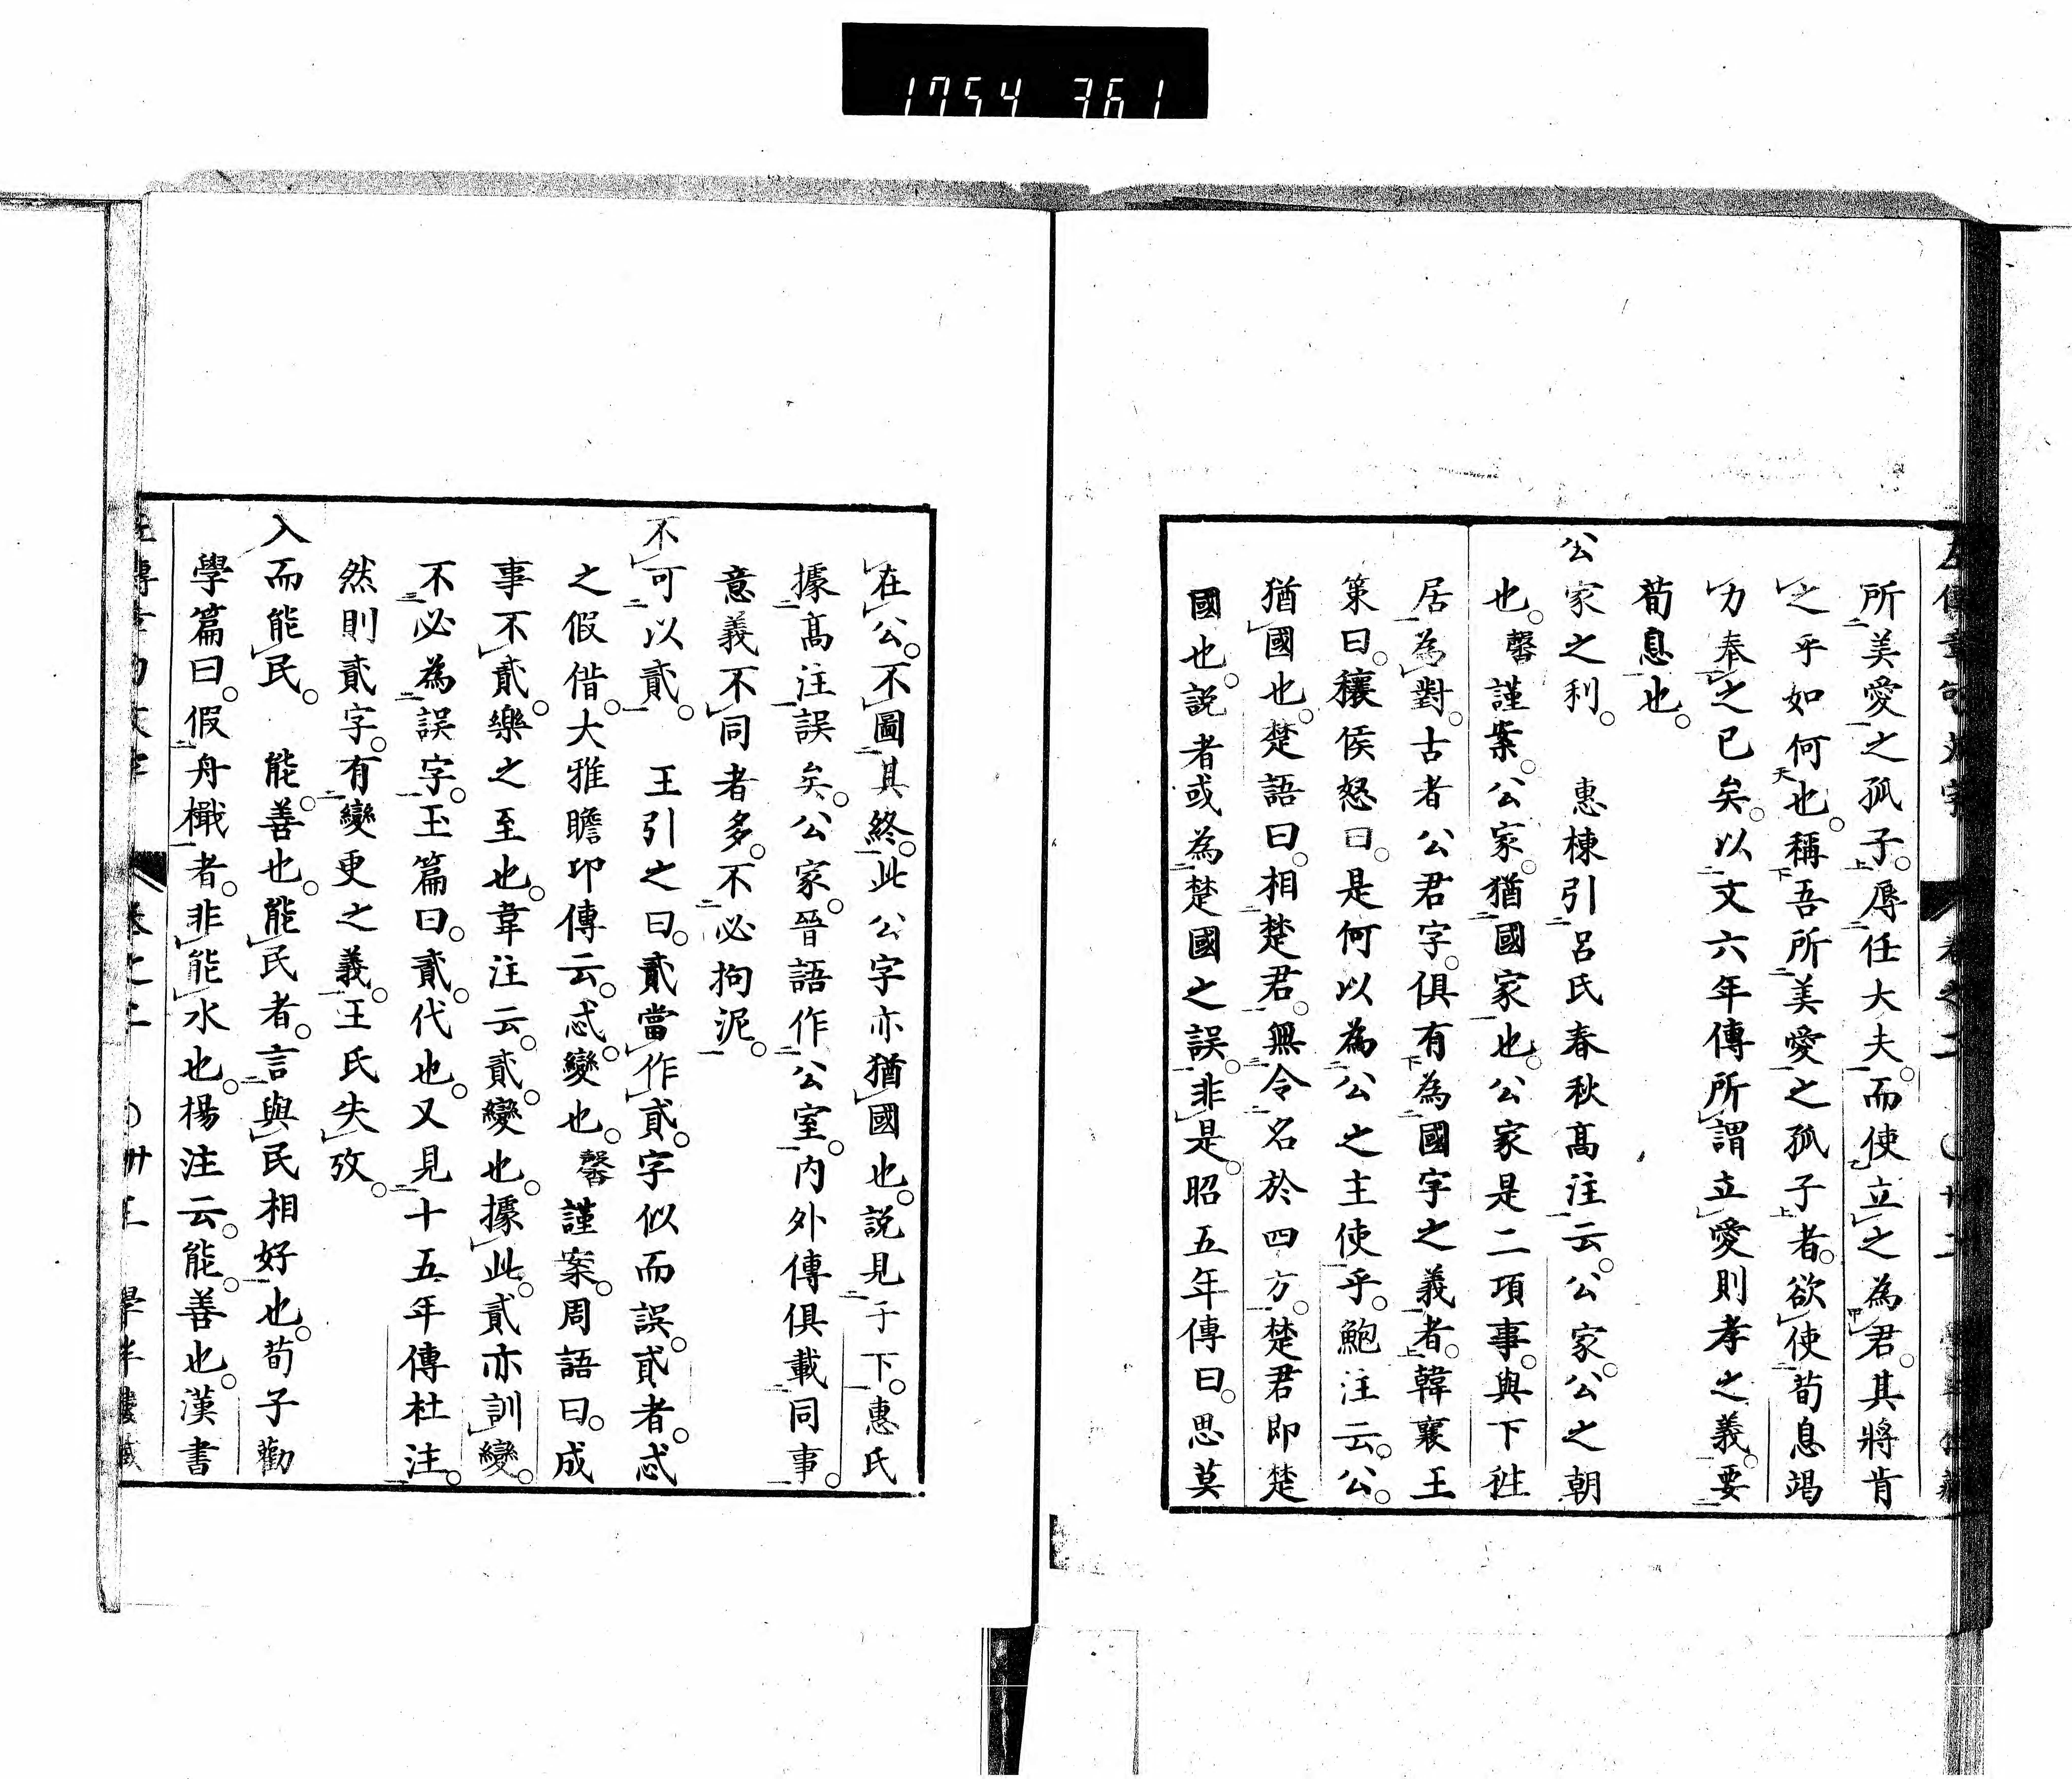 1754 361
所美愛之孤子。辱任大夫。而使立之為君。其將肯
之乎如何也。稱吾所美愛之孤子者。欲使荀息竭
力奉之已矣。以文六年傳所謂立愛則孝之義。要
荀息也。
公家之利。 惠棟引呂氏春秋高注云。公家。公之朝
也。馨謹案。公家。猶國家也。公家是二項事。與下徃
居為對。古者公君字。俱有為國字之義者。韓襄王
策曰。穰侯怒曰。是何以為公之主使乎。鮑注云。公。
猶國也。楚語曰。相楚君。無令名於四方。楚君即楚
國也。説者或為楚國之誤。非是。昭五年傳曰。思莫
在公。不圖其終。此公字亦猶國也。説見于下。惠氏
據高注誤矣。公家。晉語作公室。内外傳俱載同事。
意義不同者多。不必拘泥。
不可以貳。 王引之曰。貳當作貣。字似而誤。貣者。忒
之假借。大雅瞻卬傳云。忒。變也。馨謹案。周語曰。成
事不貳。樂之至也。韋注云。貳。變也。據此。貳亦訓變。
不必為誤字。玉篇曰。貳。代也。又見十五年傳杜注。
然則貳字。有變更之義。王氏失攷。
入而能民。 能。善也。能民者。言與民相好也。荀子勸
學篇曰。假舟檝者。非能水也。楊注云。能。善也。漢書